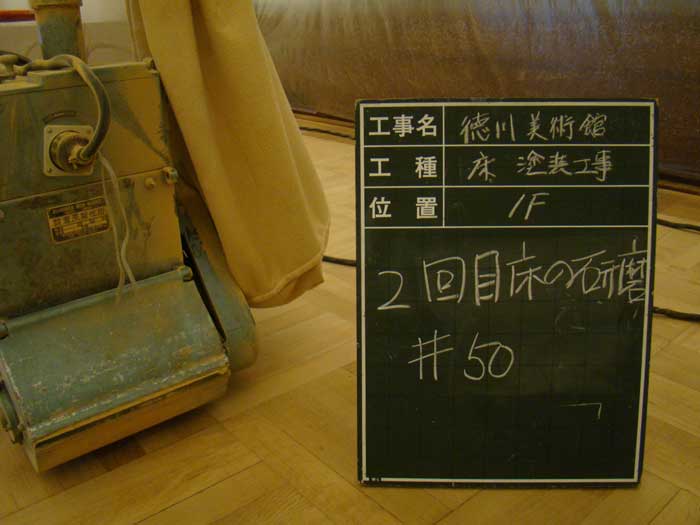 工事名 徳川美術館
工種 床 塗装工事
位置 1F
2回目床の研磨
#50